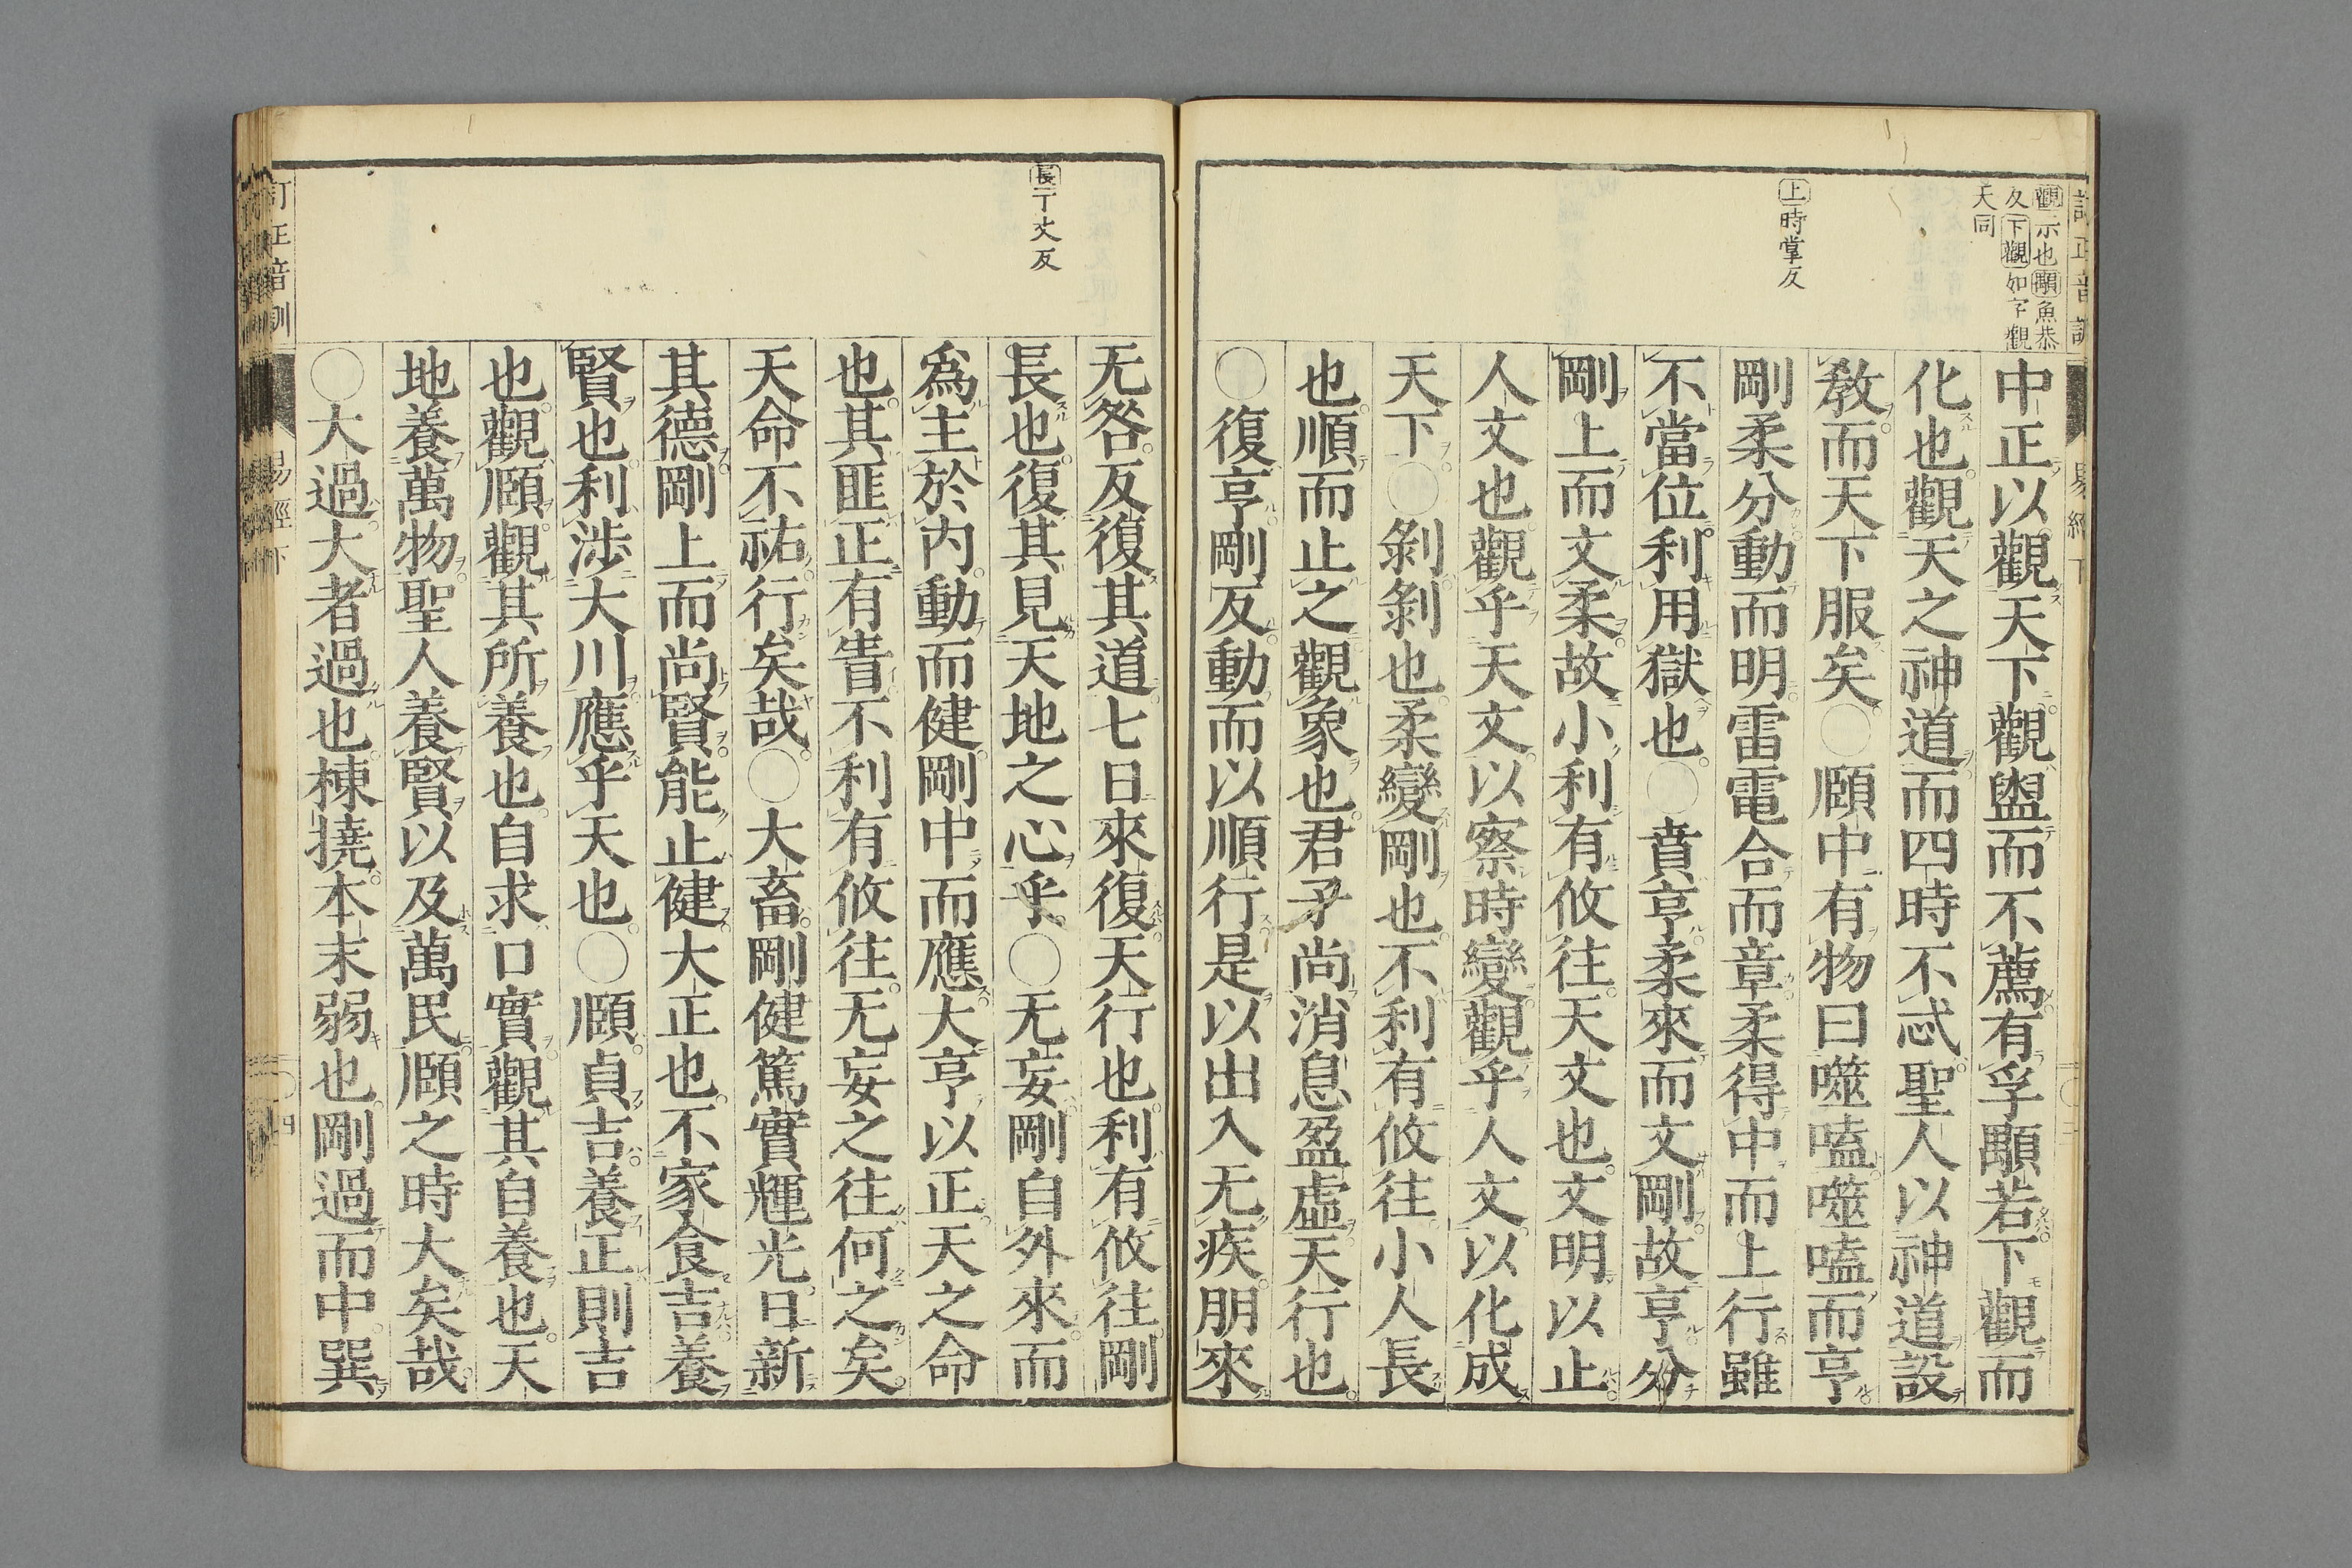 觀示也顒魚恭
反下觀如字觀
天同
上時掌反
中正以觀天下觀盥而不薦有孚顒若下觀而
化也觀天之神道而四時不忒聖人以神道設
教而天下服矣○頤中有物曰噬嗑噬嗑而亨
剛柔分動而明雷電合而章柔得中而上行雖
不當位利用獄也○賁亨柔來而文剛故亨分
剛上而文柔故小利有攸往天文也文明以止
人文也觀乎天文以察時變觀乎人文以化成
天下○剝剝也柔變剛也不利有攸往小人長
也順而止之觀象也君子尚消息盈虛天行也
○復亨剛反動而以順行是以出入无疾朋來
長丁丈反
无咎反復其道七日來復天行也利有攸往剛
長也復其見天地之心乎○无妄剛自外來而
爲主於內動而健剛中而應大亨以正天之命
也其匪正有眚不利有攸往无妄之往何之矣
天命不祐行矣哉○大畜剛健篤實輝光日新
其德剛上而尚賢能止健大正也不家食吉養
賢也利涉大川應乎天也○頤貞吉養正則吉
也觀頤觀其所養也自求口實觀其自養也天
地養萬物聖人養賢以及萬民頤之時大矣哉
○大過大者過也棟撓本末弱也剛過而中巽
訂正音訓
易經下
四